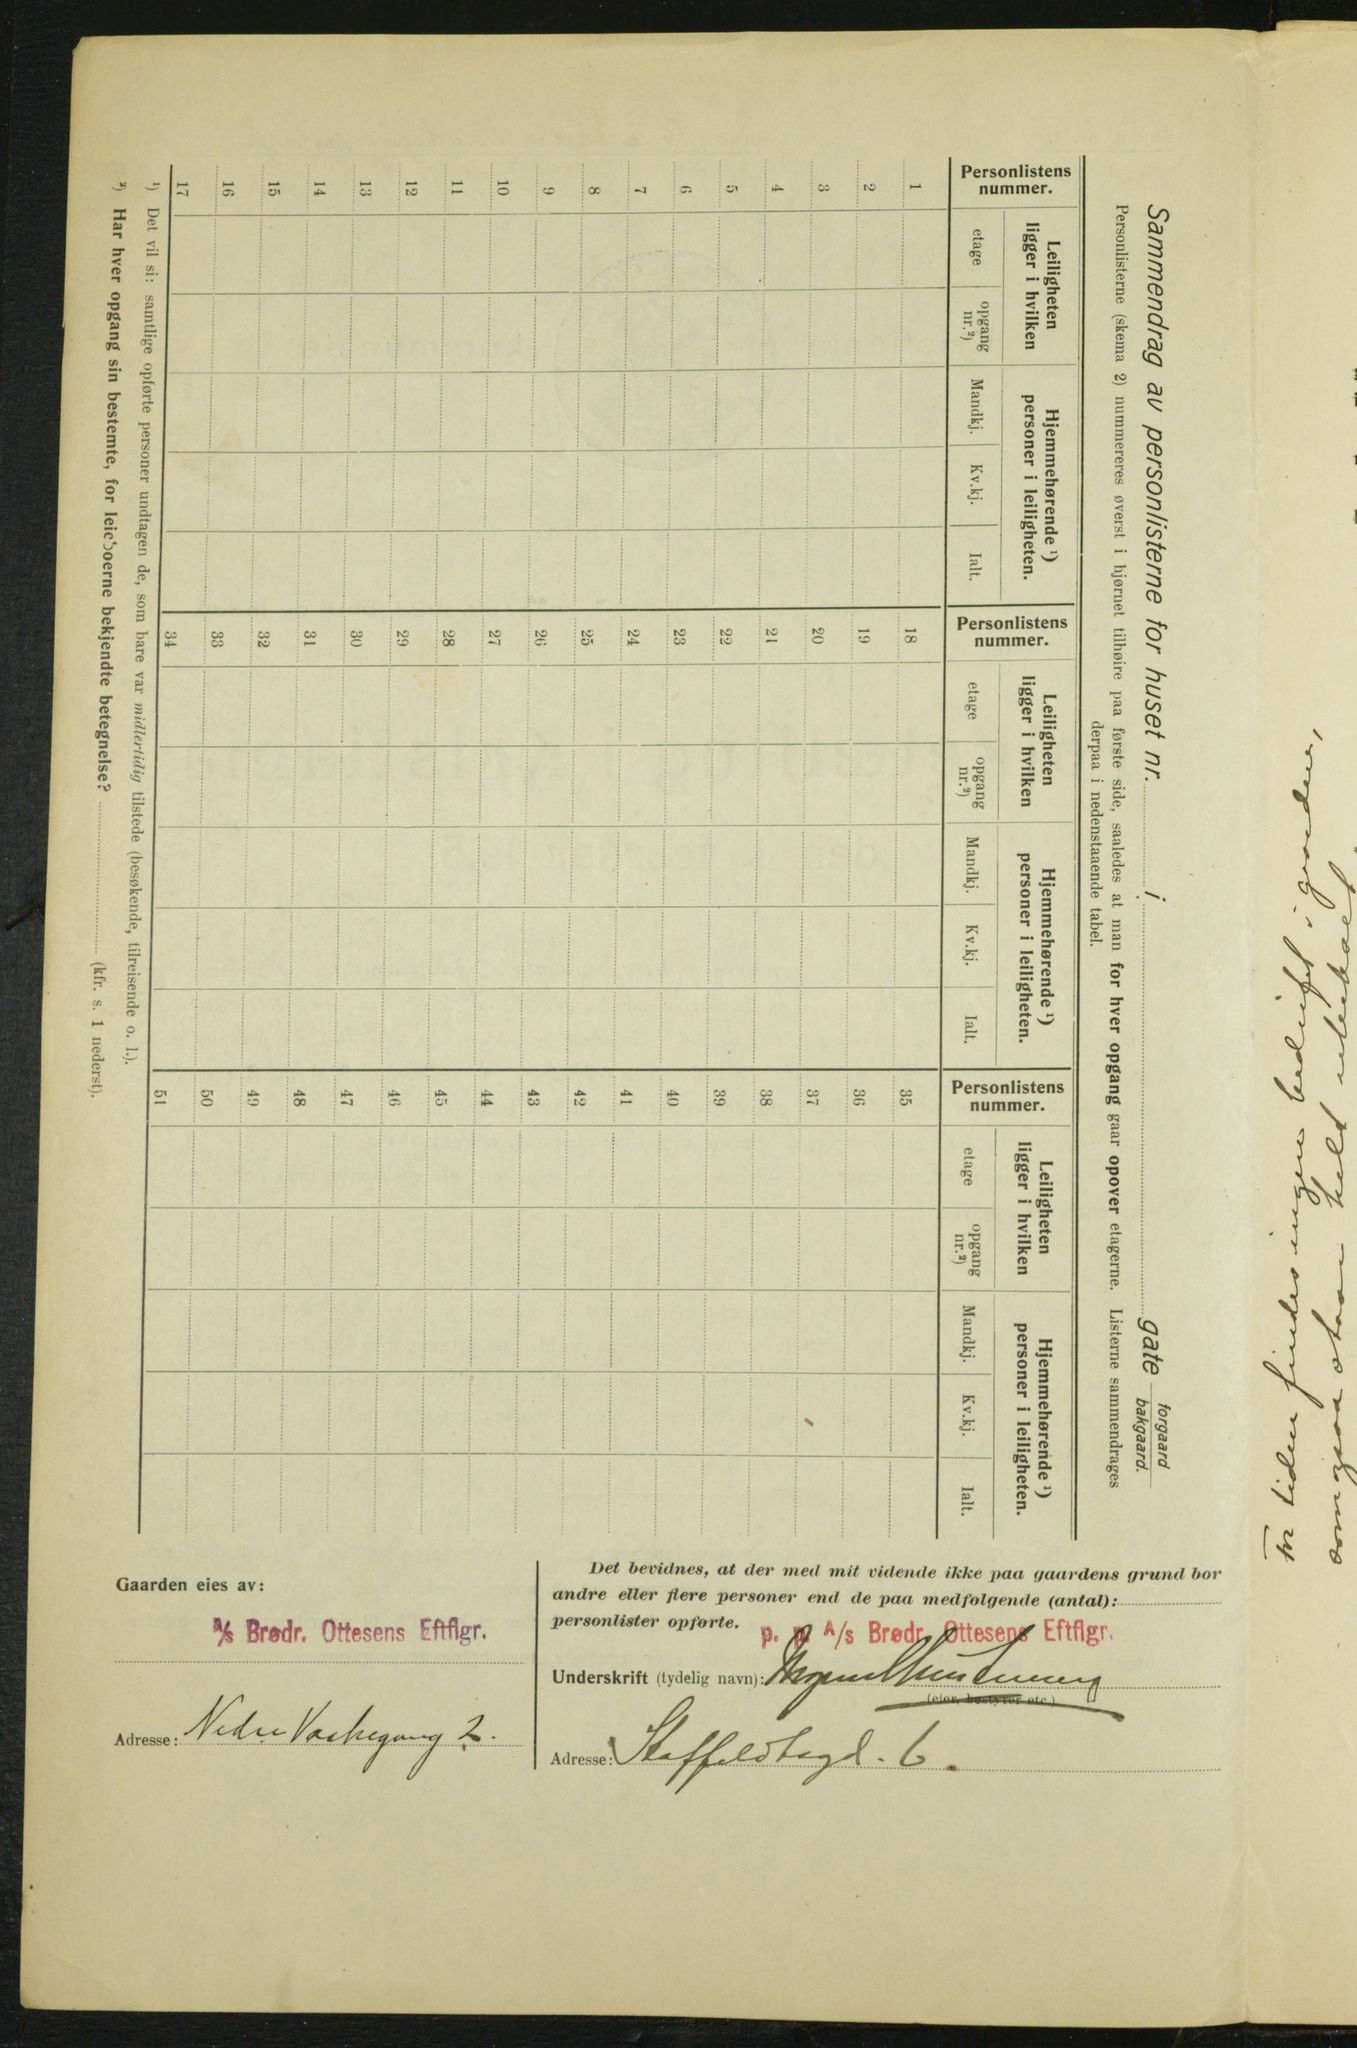 Sammendrag av personlisterne for huset nr. i gate forgaard bakgaard.
Personlisterne (skema 2) nummereres øverst i hjørnet tilhøire paa første side, saaledes at man for hver opgang gaar opover etagerne. Listerne sammendrages
derpaa i nedenstaaende tabel.
Personlistens nummer. Leiligheten ligger i hvilken Hjemmehørende ¹) personer i leiligheten. Personlistens nummer. Leiligheten ligger i hvilken Hjemmehørende ¹) personer i leiligheten. Personlistens nummer. Leiligheten ligger i hvilken Hjemmehørende ¹) personer i leiligheten.
etage opgang nr.²) Mandkj. Kv.kj. Ialt. etage opgang nr.²) Mandkj. Kv.kj. Ialt. etage opgang nr.²) Mandkj. Kv.kj. Ialt.
1 18 35
2 19 36
3 20 37
4 21 38
5 22 39
6 23 40
7 24 41
8 25 42
9 26 43
10 27 44
11 28 45
12 29 46
13 30 47
14 31 48
15 32 49
16 33 50
17 34 51
¹) Det vil si: samtlige opførte personer undtagen de, som bare var midlertidig tilstede (besøkende, tilreisende o. l.).
²) Har hver opgang sin bestemte, for leieboerne bekjendte betegnelse? (kfr. s. 1 nederst).
Gaarden eies av:
A/s Brødr. Ottesens Eftflgr.
Adresse: Nedre Vaskegang 2.
Det bevidnes, at der med mit vidende ikke paa gaardens grund bor
andre eller flere personer end de paa medfølgende (antal):
personlister opførte.
p. p. A/s Brødr. Ottesens Eftflgr.
Underskrift (tydelig navn):
(eier, bestyrer etc.)
Adresse: Staffeldtsgd. 6.
For tiden findes ingen bedrift i gaarden,